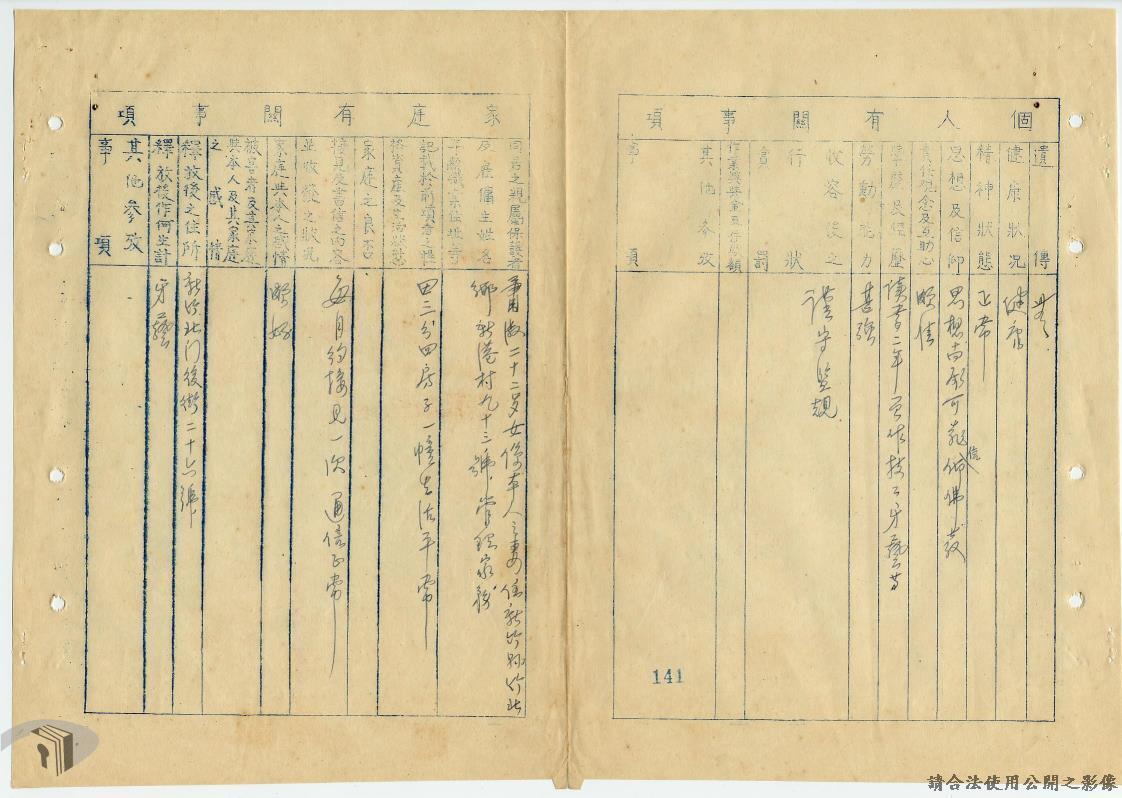 個人有關事項
遺傳 無
健康狀況 健康
精神狀態 正常
思想及信仰 思想尚屬可靠信仰佛教
責任觀念及互助心 頗佳
學歷及經歷 讀書二年曾作技工牙藝等
勞動能力 甚強
收容後之行狀 謹守監規
賞罰
作業與共金及作業額
其他參攷事項
141
家庭有關事項
同居之親屬保護者及雇傭主姓名年齡職業住址等 二十二岁女係本人之妻住新竹縣竹北鄉新港村九十三號管理家務
記載於前項者之性格資產及生活狀態 田三分四房子一幢生活平常
家庭之良否
接見及書信之內容並收發之狀況 每月約接見一次通信正常
家庭與本人之感情 頗好
被害者及其家庭與本人及其家庭之感情
釋放後之住所 新竹北门後街二十六號
釋放後作何生計 牙藝
其他參攷事項
請合法使用公開之影像